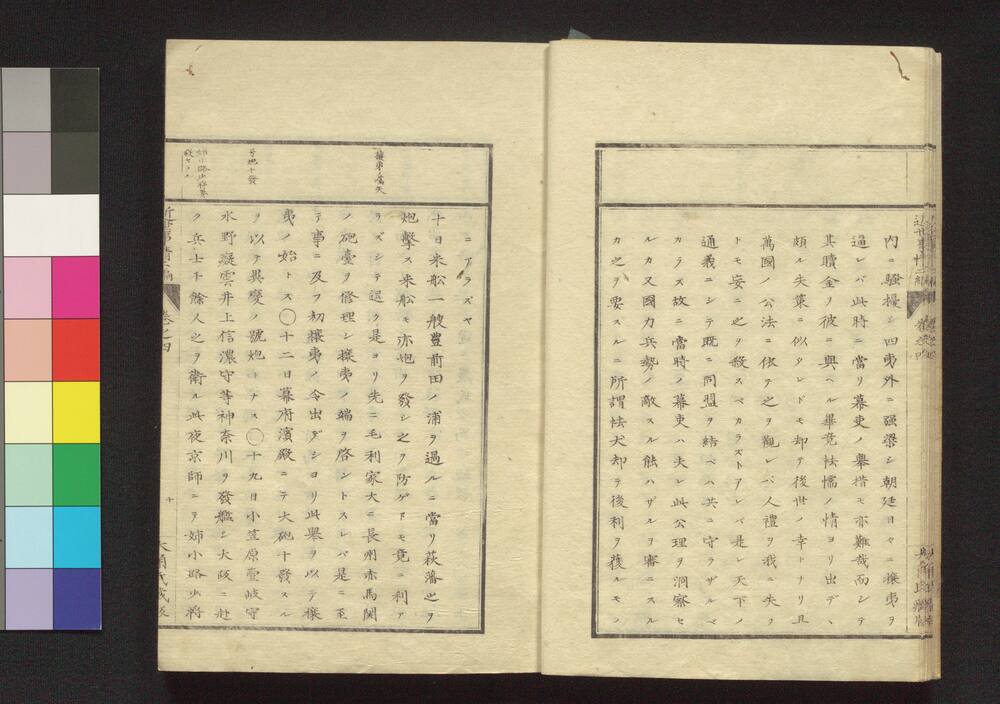 内ニ騒擾シ四夷外ニ强梁シ朝廷日々ニ攘夷ヲ
逼レバ此時ニ當リ幕吏ノ擧措モ亦難哉而シテ
其贖金ヲ彼ニ與ヘル畢竟怯懦ノ情ヨリ出デ、
頗ル失策ニ似タレドモ却テ後世ノ幸トナリ且
萬國ノ公法ニ依テ之ヲ觀レバ人禮ヲ我ニ失フ
トモ妄ニ之ヲ殺スベカラズトアレバ是レ天下ノ
通義ニシテ既ニ同盟ヲ結ベハ共ニ守ラザルベ
カラズ故ニ當時ノ幕吏ハ夫レ此公理ヲ洞察セ
ルカ又國力兵勢ノ敵スル能ハザルヲ審ニスル
カ之ヲ要スルニ所謂怯犬却テ後利ヲ獲ルモノ
ニアラズヤ
攘夷ノ嚆矢
十日米舩一艘豊前田ノ浦ヲ過ルニ當リ萩藩之ヲ
炮擊ス米舩モ亦炮ヲ發シ之ヲ防ゲドモ竟ニ利ア
ラズシテ退ク是ヨリ先ニ毛利家大ニ長州赤馬関
ノ砲臺ヲ修理シ攘夷ノ端ヲ啓ントスレバ是ニ至
テ事ニ及フ初攘夷ノ令出デシヨリ此擧ヲ以テ攘
夷ノ始トス〇十二日幕府濱殿ニテ大砲十發スル
ヲ以テ異變ノ號炮トナス〇十九日小笠原壹岐守
水野癡雲井上信濃守等神奈川ヲ發艦シ大阪ニ赴
ク兵士千餘人之ヲ衛ル此夜京師ニテ姉小路少將
巻之四
十